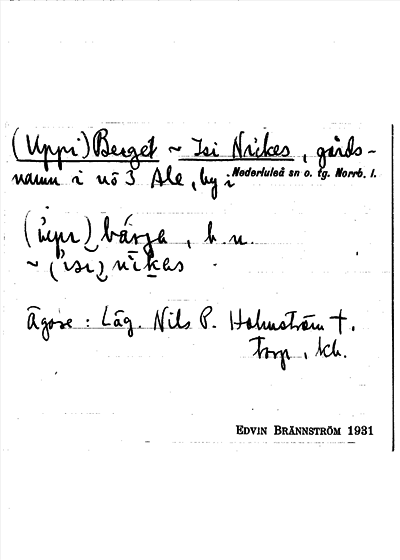 (Uppi) Berget ~ Isi Nikes, gårds-
namn i nö 3 Ale, by i Nederluleå sn o. tg. Norrb. l.
(ùpi) bárja, h.n.
~ (ìsi) nikas
Ägare: Läg. Nils P. Holmström †.
torp, kh.
EDVIN BRÄNNSTRÖM 1931